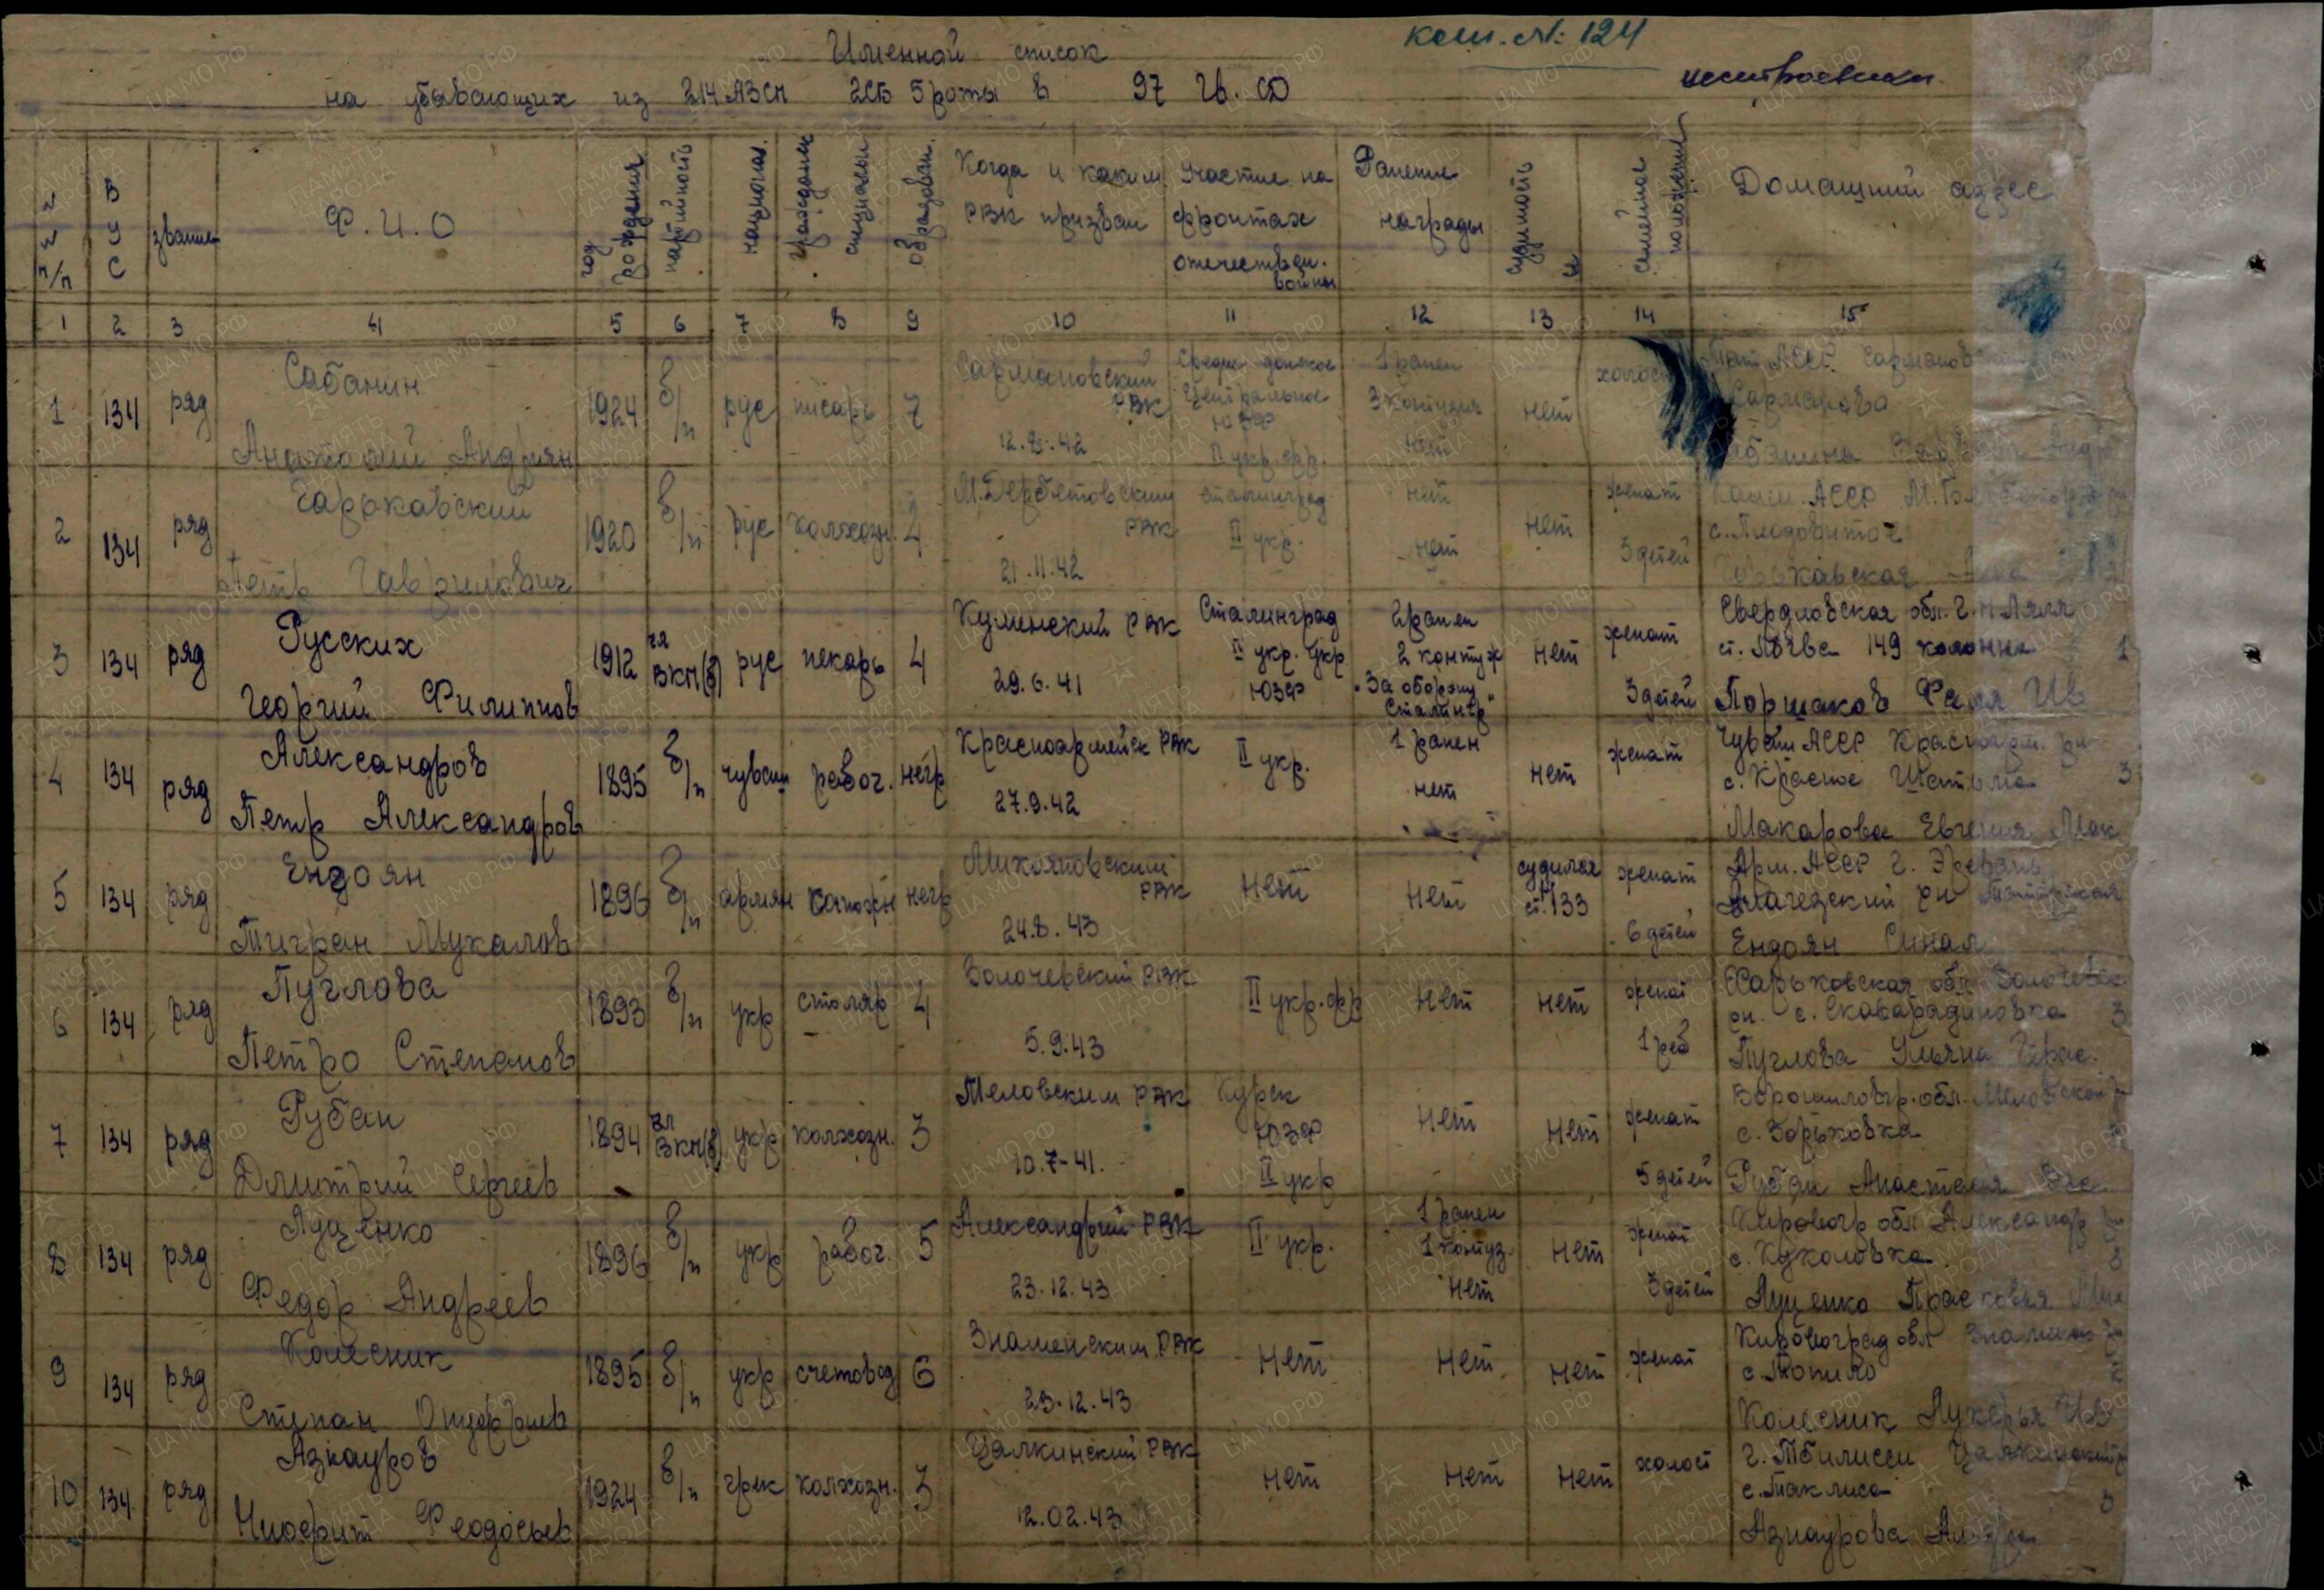 Именной список
ком. №: 124
на убывающих из 214 АЗСП 2СБ 5 роты в 97 Гв. СД
№№ п/п
ВУС
звание
Ф.И.О
год рождения
партийность
национал.
гражданск специальн
образован.
Когда и каким РВК призван
Участие на фронтах отечествен. войны
Ранение награды
судимость
семейное положение
Домашний адрес
1 2 3 4 5 6 7 8 9 10 11 12 13 14 15
1 134 ряд Сабанин 1924 б/п рус писарь 7 Сармановский РВК 1 ранен нет холост
Анатолий Андриян 12.8.42 II укр. фр. нет
2 134 ряд Гарькавский 1920 б/п рус колхозн. 4 М.Дербетовским РВК Сталинград нет нет женат
Петр Гаврилович 21.11.42 II укр. нет 3 детей
с. Плодовитое
3 134 ряд Русских 1912 чл ВКП(б) рус пекарь 4 Куминский РВК Сталинград 2 ранен нет женат Свердловская обл. г. Н Ляля
II укр. укр 2 контуж ст. Лобва 149 колонна 1
Георгий Филиппов 29.6.41 ЮЗФ "За оборону Сталингр" 3 детей
4 134 ряд Александров 1895 б/п чуваш рабоч. негр Красноармейск РВК II укр. 1 ранен нет женат Чуваш АССР Красноарм. рн
Петр Александров 27.9.42 нет с. Красное 3
Макарова Евгения Мак
5 134 ряд Ендоян 1896 б/п армян сапожн негр Микояновский РВК нет нет судился ст. 133 женат Арм. АССР г. Эревань
Тигран Мукалов 24.8.43 6 детей
Ендоян Синал
6 134 ряд Пуглова 1893 б/п укр столяр 4 Золочевский РВК II укр. фр нет нет женат Харьковская обл Золочевск
рн. с. Скаварадиновка 3
Петро Степанов 5.9.43 1 реб Пуглова Ульяна Герас.
7 134 ряд Рубан 1894 чл ВКП(б) укр колхозн. 3 Меловским РВК Курск нет нет женат Ворошиловгр. обл. Меловской
ЮЗФ с. Зорыковка
Дмитрий Сергеев 10.7-41. II укр 5 детей Рубан Анастасия
8 134 ряд Луценко 1896 б/п укр рабоч. 5 Александрий РВК II укр. 1 ранен нет женат Кировогр обл Александр
1 контуз. с. Куколовка 3
Федор Андреев 23.12.43 нет 3 детей Луценко Прасковья
9 134 ряд Колесник 1895 б/п укр счетовод 6 Знаменским РВК нет нет нет женат Кировоград обл Знаменск
с. Топило
Степан Онуфриев 29.12.43 Колесник Лукерья Ив
10 134 ряд Азнауров 1924 б/п грек колхозн. 3 Цалкинский РВК нет нет нет холост г. Тбилисси Цалкинский
с. Таклиса 3
Феодосьев 12.02.43 Азнаурова